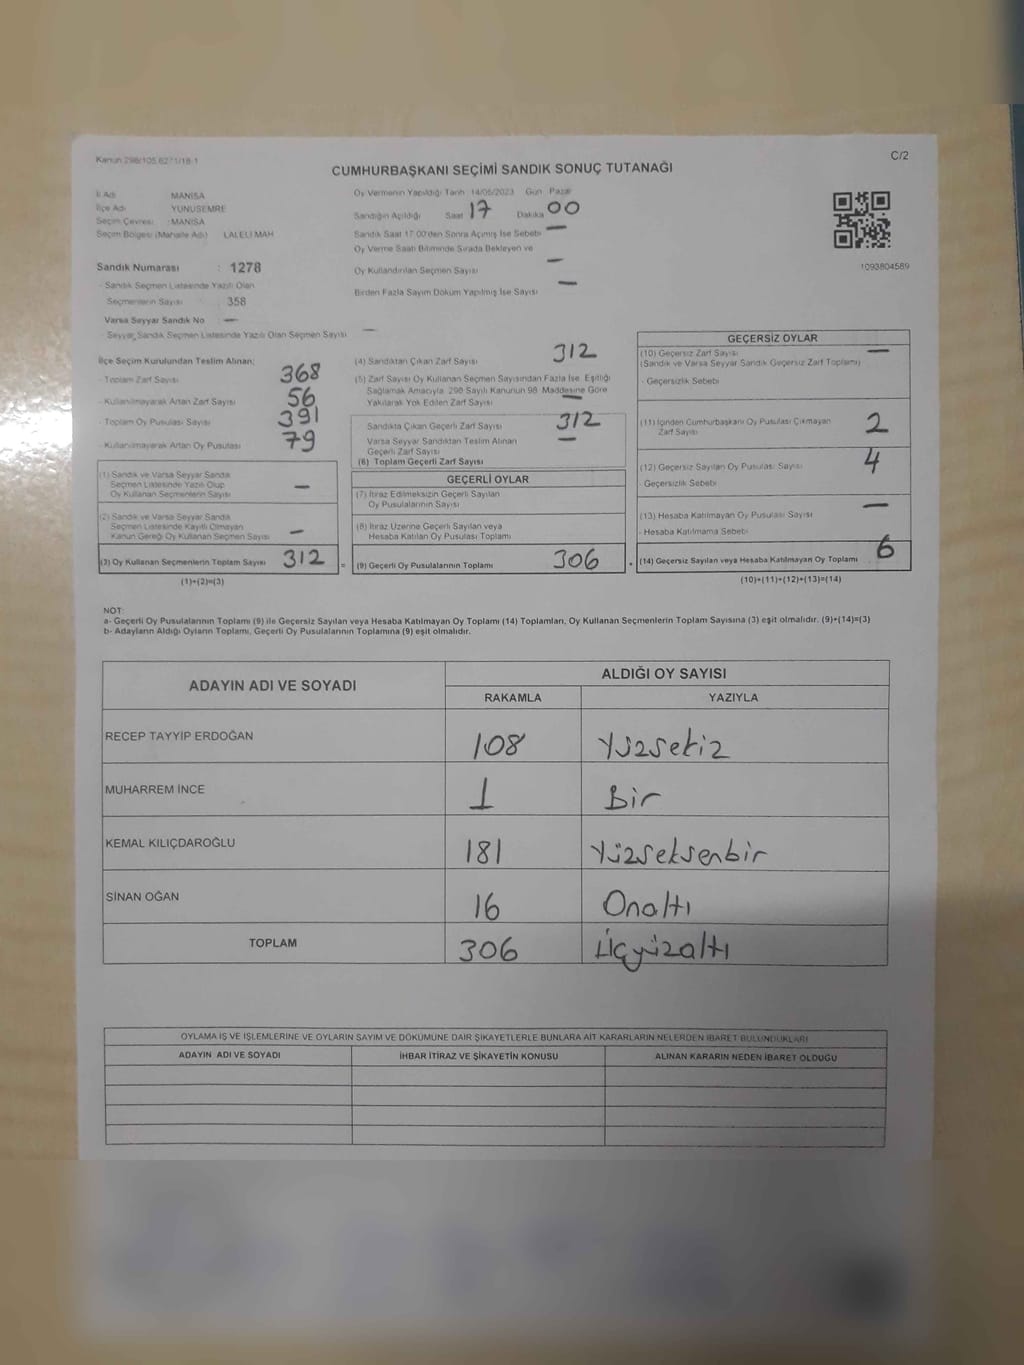 Kanun 298/105,6271/18-1
C/2
CUMHURBAŞKANI SEÇİMİ SANDIK SONUÇ TUTANAĞI
İl Adı MANİSA
İlçe Adı YUNUSEMRE
Seçim Çevresi : MANİSA
Seçim Bölgesi (Mahalle Adı) LALELİ MAH
Oy Vermenin Yapıldığı Tarih 14/05/2023 Gün Pazar
Sandığın Açıldığı Saat 17 Dakika 00
Sandık Saat 17:00'den Sonra Açılmış İse Sebebi —
Oy Verme Saati Bitiminde Sırada Bekleyen ve
Oy Kullandırılan Seçmen Sayısı —
Birden Fazla Sayım Döküm Yapılmış İse Sayısı —
1093804589
Sandık Numarası : 1278
- Sandık Seçmen Listesinde Yazılı Olan
Seçmenlerin Sayısı 358
Varsa Seyyar Sandık No —
- Seyyar Sandık Seçmen Listesinde Yazılı Olan Seçmen Sayısı —
İlçe Seçim Kurulundan Teslim Alınan;
- Toplam Zarf Sayısı 368
- Kullanılmayarak Artan Zarf Sayısı 56
- Toplam Oy Pusulası Sayısı 391
- Kullanılmayarak Artan Oy Pusulası 79
(1) Sandık ve Varsa Seyyar Sandık
Seçmen Listesinde Yazılı Olup
Oy Kullanan Seçmenlerin Sayısı —
(2) Sandık ve Varsa Seyyar Sandık
Seçmen Listesinde Kayıtlı Olmayan
Kanun Gereği Oy Kullanan Seçmen Sayısı —
(3) Oy Kullanan Seçmenlerin Toplam Sayısı 312 =
(1)+(2)=(3)
(4) Sandıktan Çıkan Zarf Sayısı 312
(5) Zarf Sayısı Oy Kullanan Seçmen Sayısından Fazla İse, Eşitliği
Sağlamak Amacıyla, 298 Sayılı Kanunun 98. Maddesine Göre
Yakılarak Yok Edilen Zarf Sayısı —
Sandıkta Çıkan Geçerli Zarf Sayısı 312
Varsa Seyyar Sandıktan Teslim Alınan
Geçerli Zarf Sayısı —
(6) Toplam Geçerli Zarf Sayısı
GEÇERLİ OYLAR
(7) İtiraz Edilmeksizin Geçerli Sayılan
Oy Pusulalarının Sayısı
(8) İtiraz Üzerine Geçerli Sayılan veya
Hesaba Katılan Oy Pusulası Toplamı
(9) Geçerli Oy Pusulalarının Toplamı 306 +
GEÇERSİZ OYLAR
(10) Geçersiz Zarf Sayısı —
(Sandık ve Varsa Seyyar Sandık Geçersiz Zarf Toplamı)
- Geçersizlik Sebebi
(11) İçinden Cumhurbaşkanı Oy Pusulası Çıkmayan
Zarf Sayısı 2
(12) Geçersiz Sayılan Oy Pusulası Sayısı 4
- Geçersizlik Sebebi
(13) Hesaba Katılmayan Oy Pusulası Sayısı —
- Hesaba Katılmama Sebebi
(14) Geçersiz Sayılan veya Hesaba Katılmayan Oy Toplamı 6
(10)+(11)+(12)+(13)=(14)
NOT:
a- Geçerli Oy Pusulalarının Toplamı (9) ile Geçersiz Sayılan veya Hesaba Katılmayan Oy Toplamı (14) Toplamları, Oy Kullanan Seçmenlerin Toplam Sayısına (3) eşit olmalıdır. (9)+(14)=(3)
b- Adayların Aldığı Oyların Toplamı, Geçerli Oy Pusulalarının Toplamına (9) eşit olmalıdır.
ADAYIN ADI VE SOYADI
ALDIĞI OY SAYISI
RAKAMLA YAZIYLA
RECEP TAYYİP ERDOĞAN 108 Yüzsekiz
MUHARREM İNCE 1 Bir
KEMAL KILIÇDAROĞLU 181 Yüzseksenbir
SİNAN OĞAN 16 Onaltı
TOPLAM 306 Üçyüzaltı
OYLAMA İŞ VE İŞLEMLERİNE VE OYLARIN SAYIM VE DÖKÜMÜNE DAİR ŞİKAYETLERLE BUNLARA AİT KARARLARIN NELERDEN İBARET BULUNDUKLARI
ADAYIN ADI VE SOYADI
İHBAR İTİRAZ VE ŞİKAYETİN KONUSU
ALINAN KARARIN NEDEN İBARET OLDUĞU